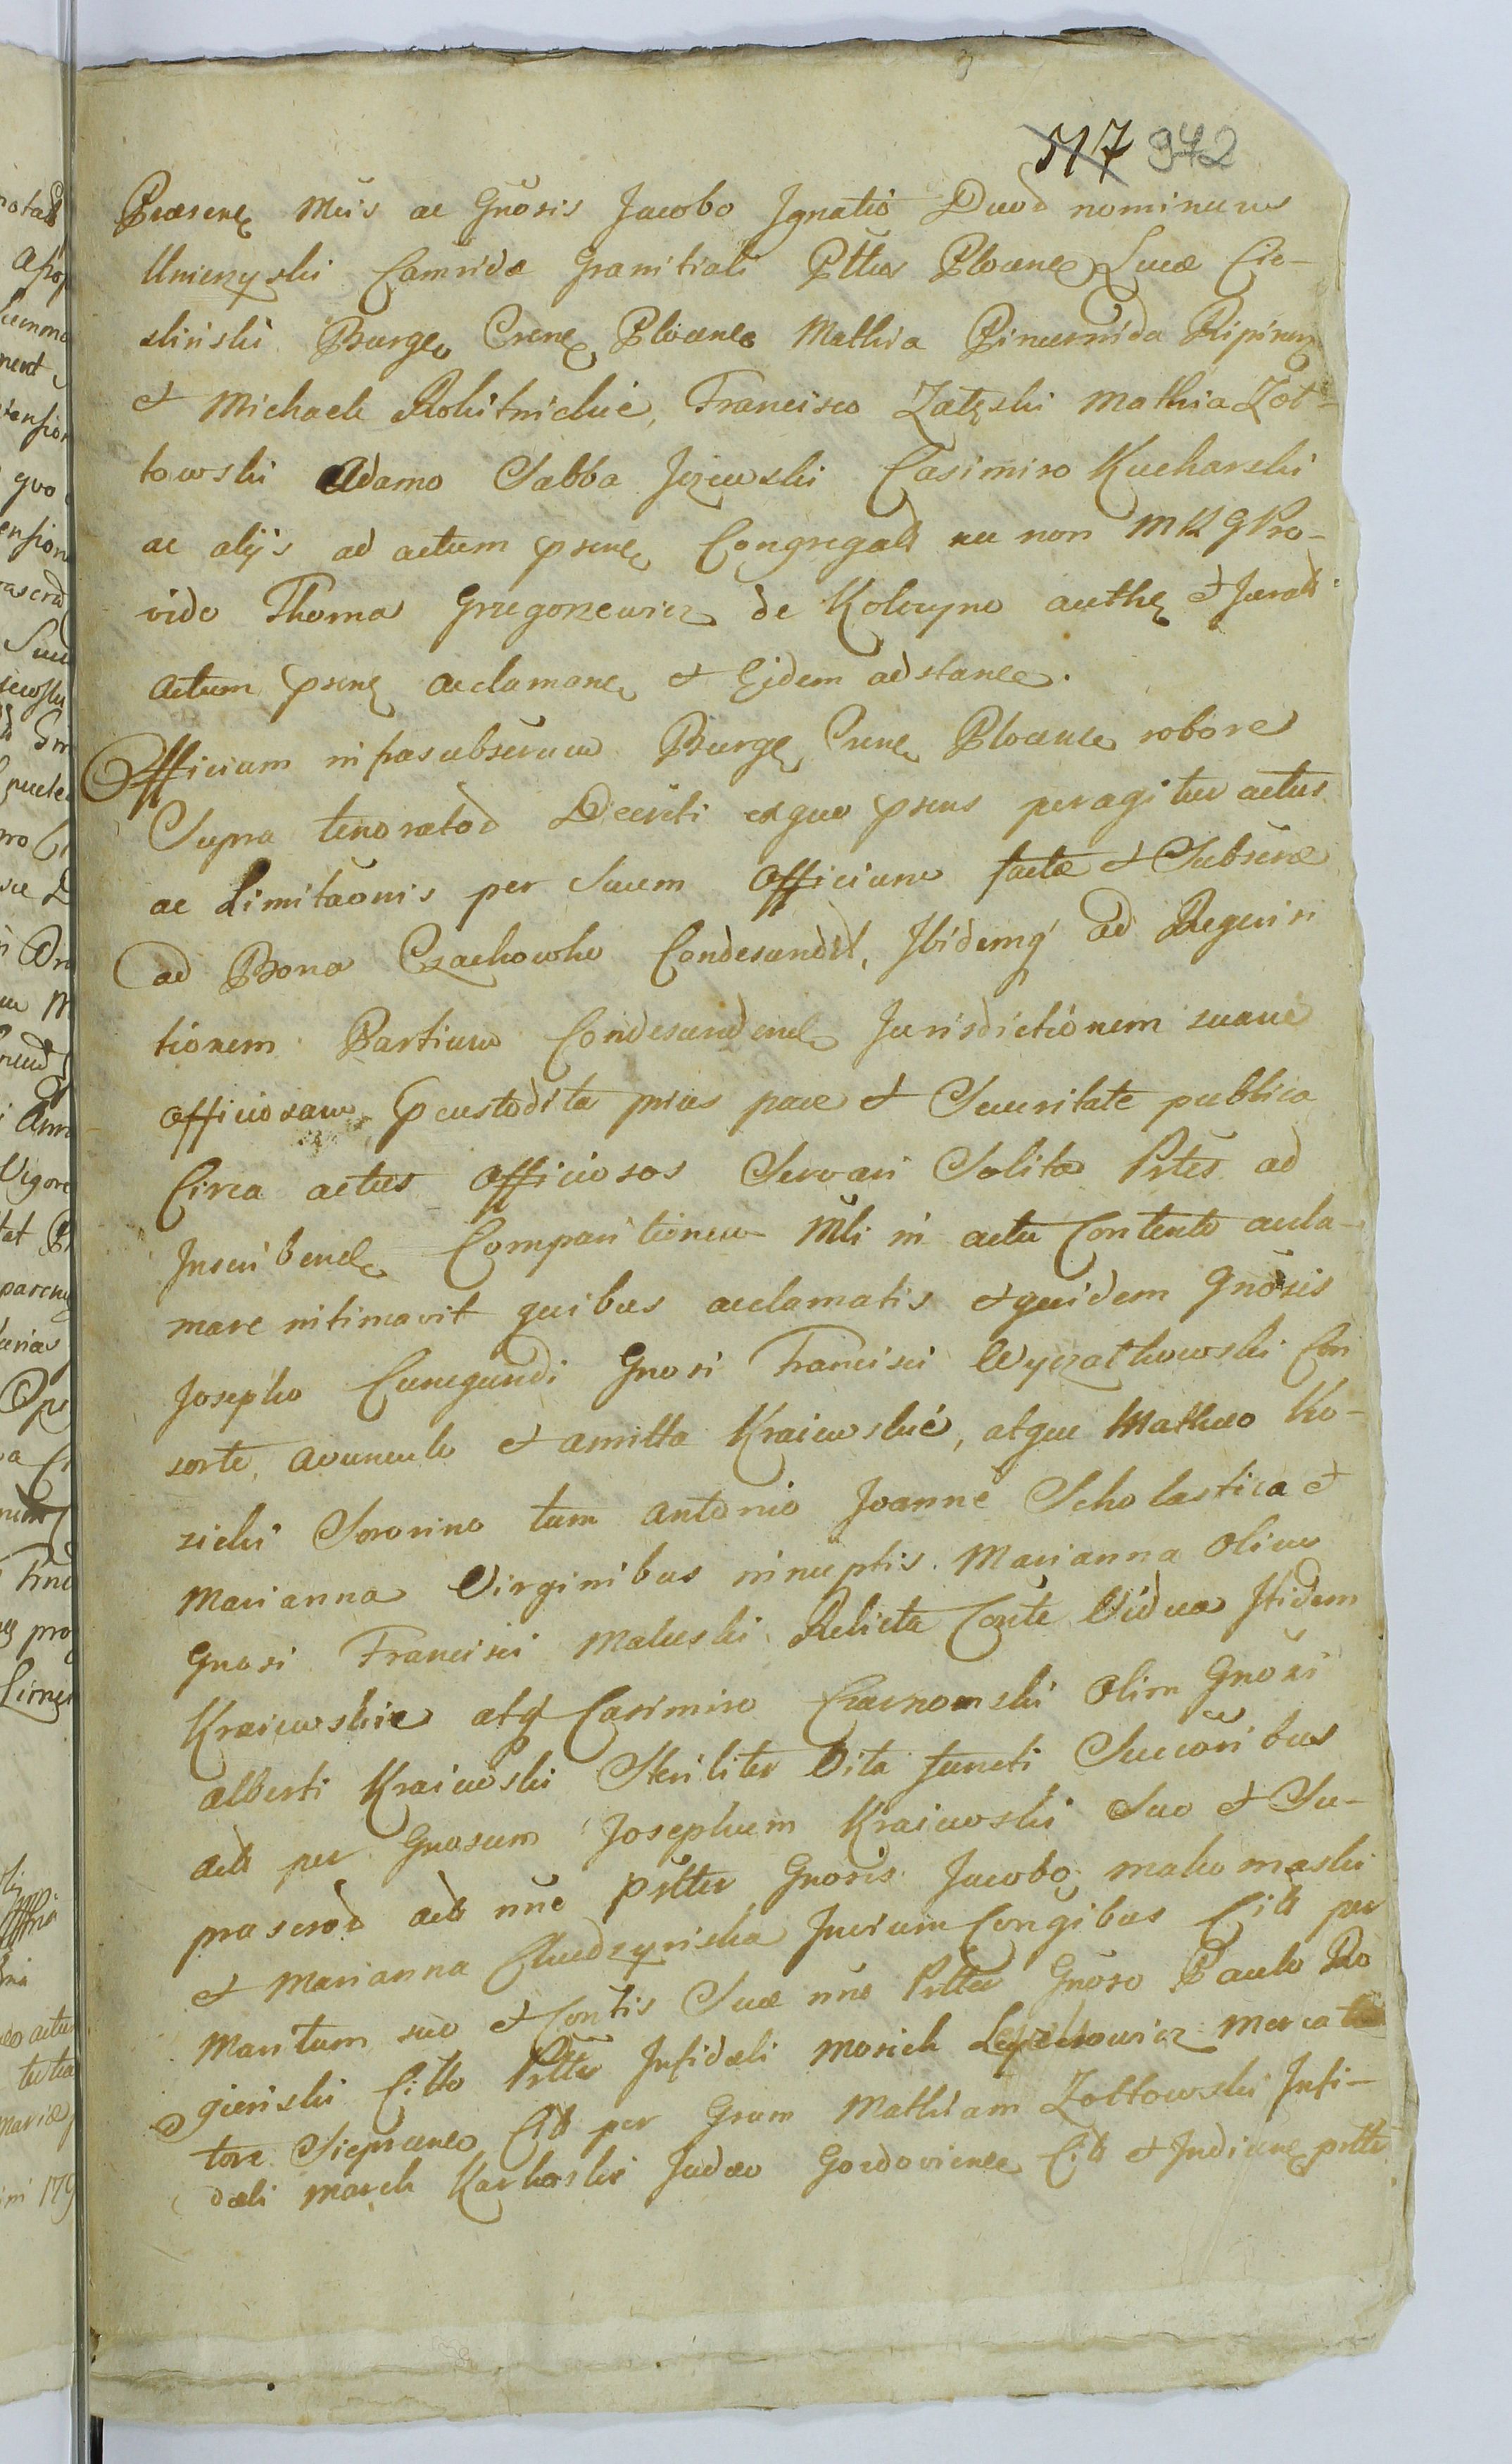 517 942
Præsene Mcis ac Gnosis Jacobo Ignatio Duod nominum
Unierzyski Camrida Granitiali Pttus Plocene Lucæ Cie-
sliński Burge Crene Plocene Mathia Pincernida Ripinen
et Michaele Rokitnickie, Francisco Załęski Mathia Zoł-
towski Adamo Sabba Jezewski Casimiro Kucharski
ac alijs ad actum psene Congregatt nec non MRG Pro-
vido Thoma Grzegorzewicz de Kolczyno authe et Jurat
actum psene acclamane et Eidem adstante.
Officium infrasubscrum Burge Crene Plocense robore
Supra tenoratod Decreti exquo psens peragitur actus
ac Limitaonis per Suum Officium factæ et Subscræ
ad Bona Czachowko Condescendit, Ibidemq ad Requisi
tionem Partium Condescendene Jurisdictionem suam
officiosam, pcustodita prius pace et Securitate publica
Circa actus officiosos Servari Solita Prtes ad
Inscribend Comparitionem Mli in actu Contento accla-
mare intimavit quibus acclamatis et quidem Gnosis
Josepho Cunegundi Gnosi Francisci Wyczałkowski Con
sorte, avunculo et amitta Kraiewskie, atque Matheo Ko-
zicki Sororino tum Antonio Joanne Scholastica et
Marianna Virginibus innuptis. Marianna Olim
Gnosi Francisci Maluski Relicta Conte Vidua Itidem
Kraiewskie atq Casimiro Czarnomski Olim Gnosi
Alberti Kraiewski Steriliter Vita functi Succoribus
actt per Gnosum Josephum Kraiewski Suo et Su-
prascrod actt nunc psltter Gnosis Jacobo Makomaski
et Marianna Chudzyńska Invicem Congibus Citt per
Maritum suo et Contis Suæ nunc Psltter Gnoso Paulo Ro
gieński Citto Psltter Infidæli Mosiek Mercat
tore Sieprcense Citt per Grum Mathiam Zołtowski Infi-
dæli Marek Karkoski Judæo Gozdoviense Citt et Indicane psltter